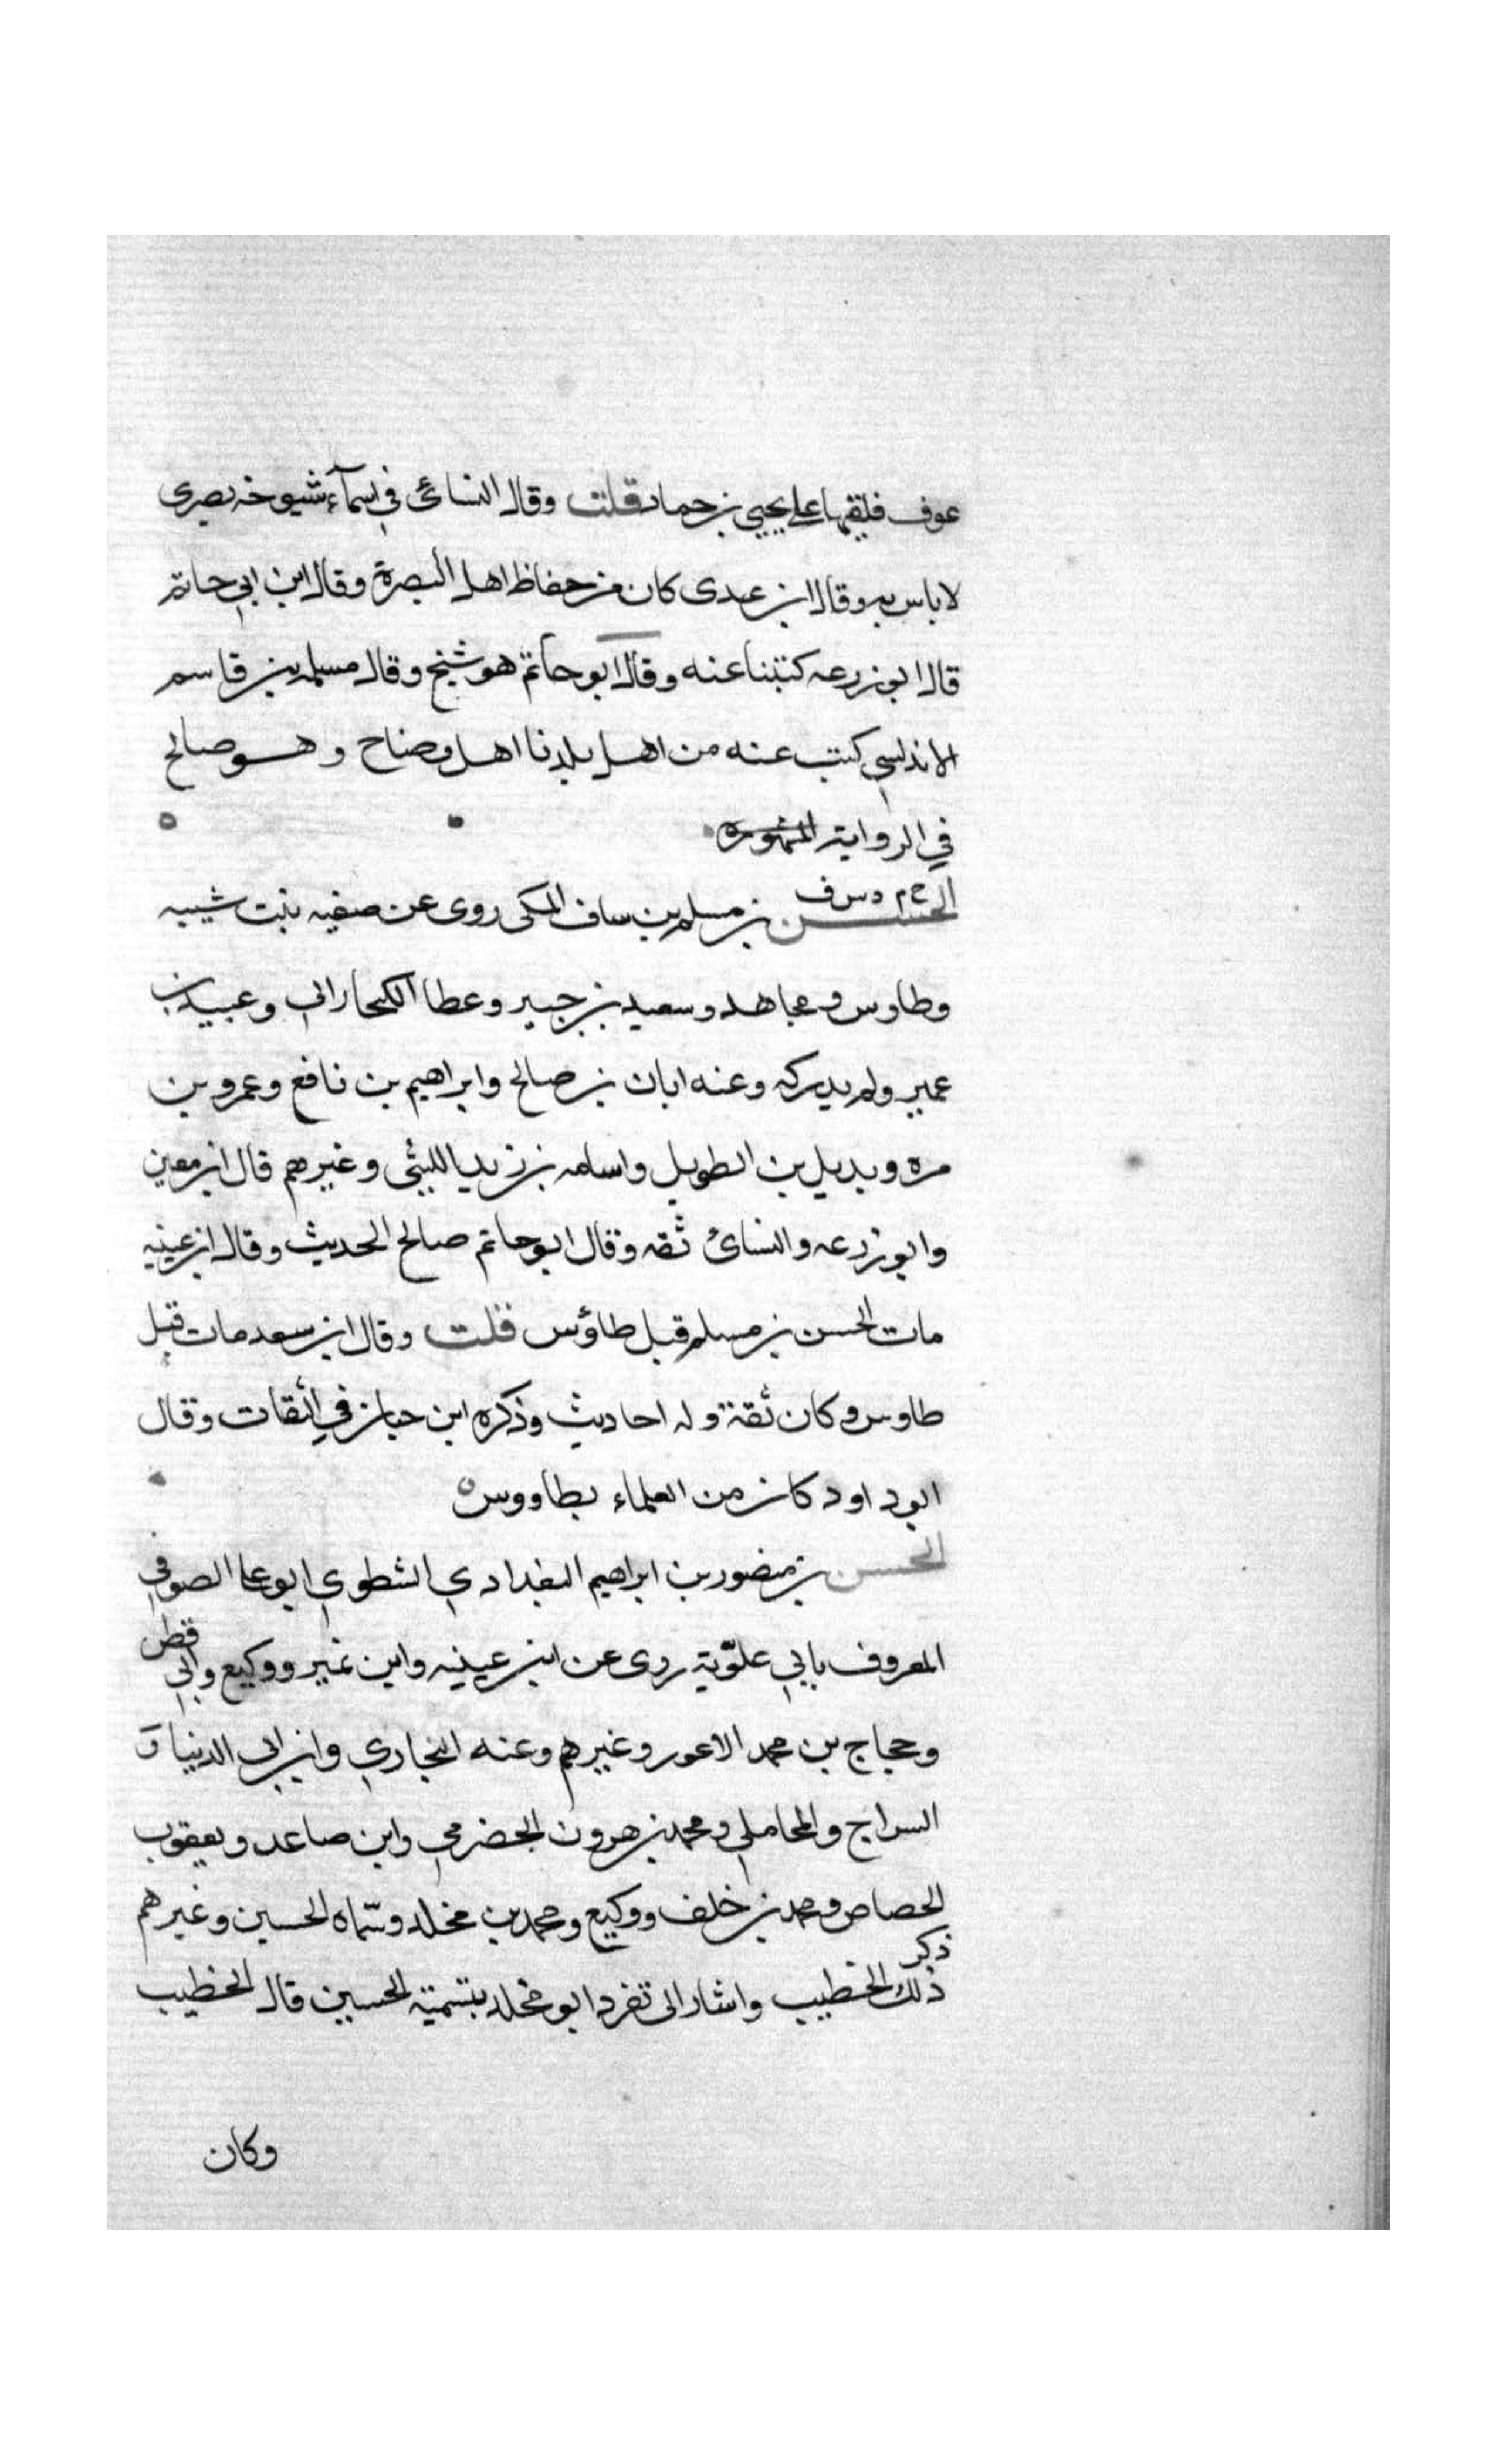 عوف فلقيها على يحيى بن حماد قلت وقال النسائى في اسمآء شيوخه بصرى
لا باس به وقال ابن عدى كان من حفاظ اهل البصرة وقال ابن ابي حاتم
قال ابو زرعه كتبنا عنه وقال ابو حاتم هو شيخ وقال مسلمه بن قاسم
الاندلسي كتب عنه من اهل بلدنا اهل وضاح وهو صالح
في الرواية المشهوره
الحسن بن مسلم بن ساف المكى روى عن صفيه بنت شيبه
وطاوس ومجاهد وسعيد بن جبير وعطا الكيحاراني وعبيد بن
عمير ولم يدركه وعنه ابان بن صالح وابراهيم بن نافع وعمرو بن
مره وبديل بن الطويل واسامه بن زيد الليثى وغيرهم قال ابن معين
وابو زرعه والنسائ ثقه وقال ابو حاتم صالح الحديث وقال ابن عيينه
مات الحسن بن مسلم قبل طاؤس قلت وقال ابن سعد مات قبل
طاوس وكان ثقة وله احاديث وذكره ابن حبان في الثقات وقال
ابو داود كان من العلماء بطاووس
الحسن بن منصور بن ابراهيم البغدادي الشطوي ابو علي الصوفي
المعروف بابي علّوية روى عن ابن عيينه وابن نمير ووكيع وابي قطن
وحجاج بن محمد الاعور وغيرهم وعنه البخاري وابن ابي الدنيا و
السراج والمحاملي ومحمد بن هرون الحضرمي وابن صاعد ويعقوب
الحصاص ومحمد بن خلف ووكيع ومحمد بن مخلد وسّماه الحسين وغيرهم
ذكر
ذلك الخطيب واشار الى تفرد ابو مخلد بتسمية الحسين قال الخطيب
وكان